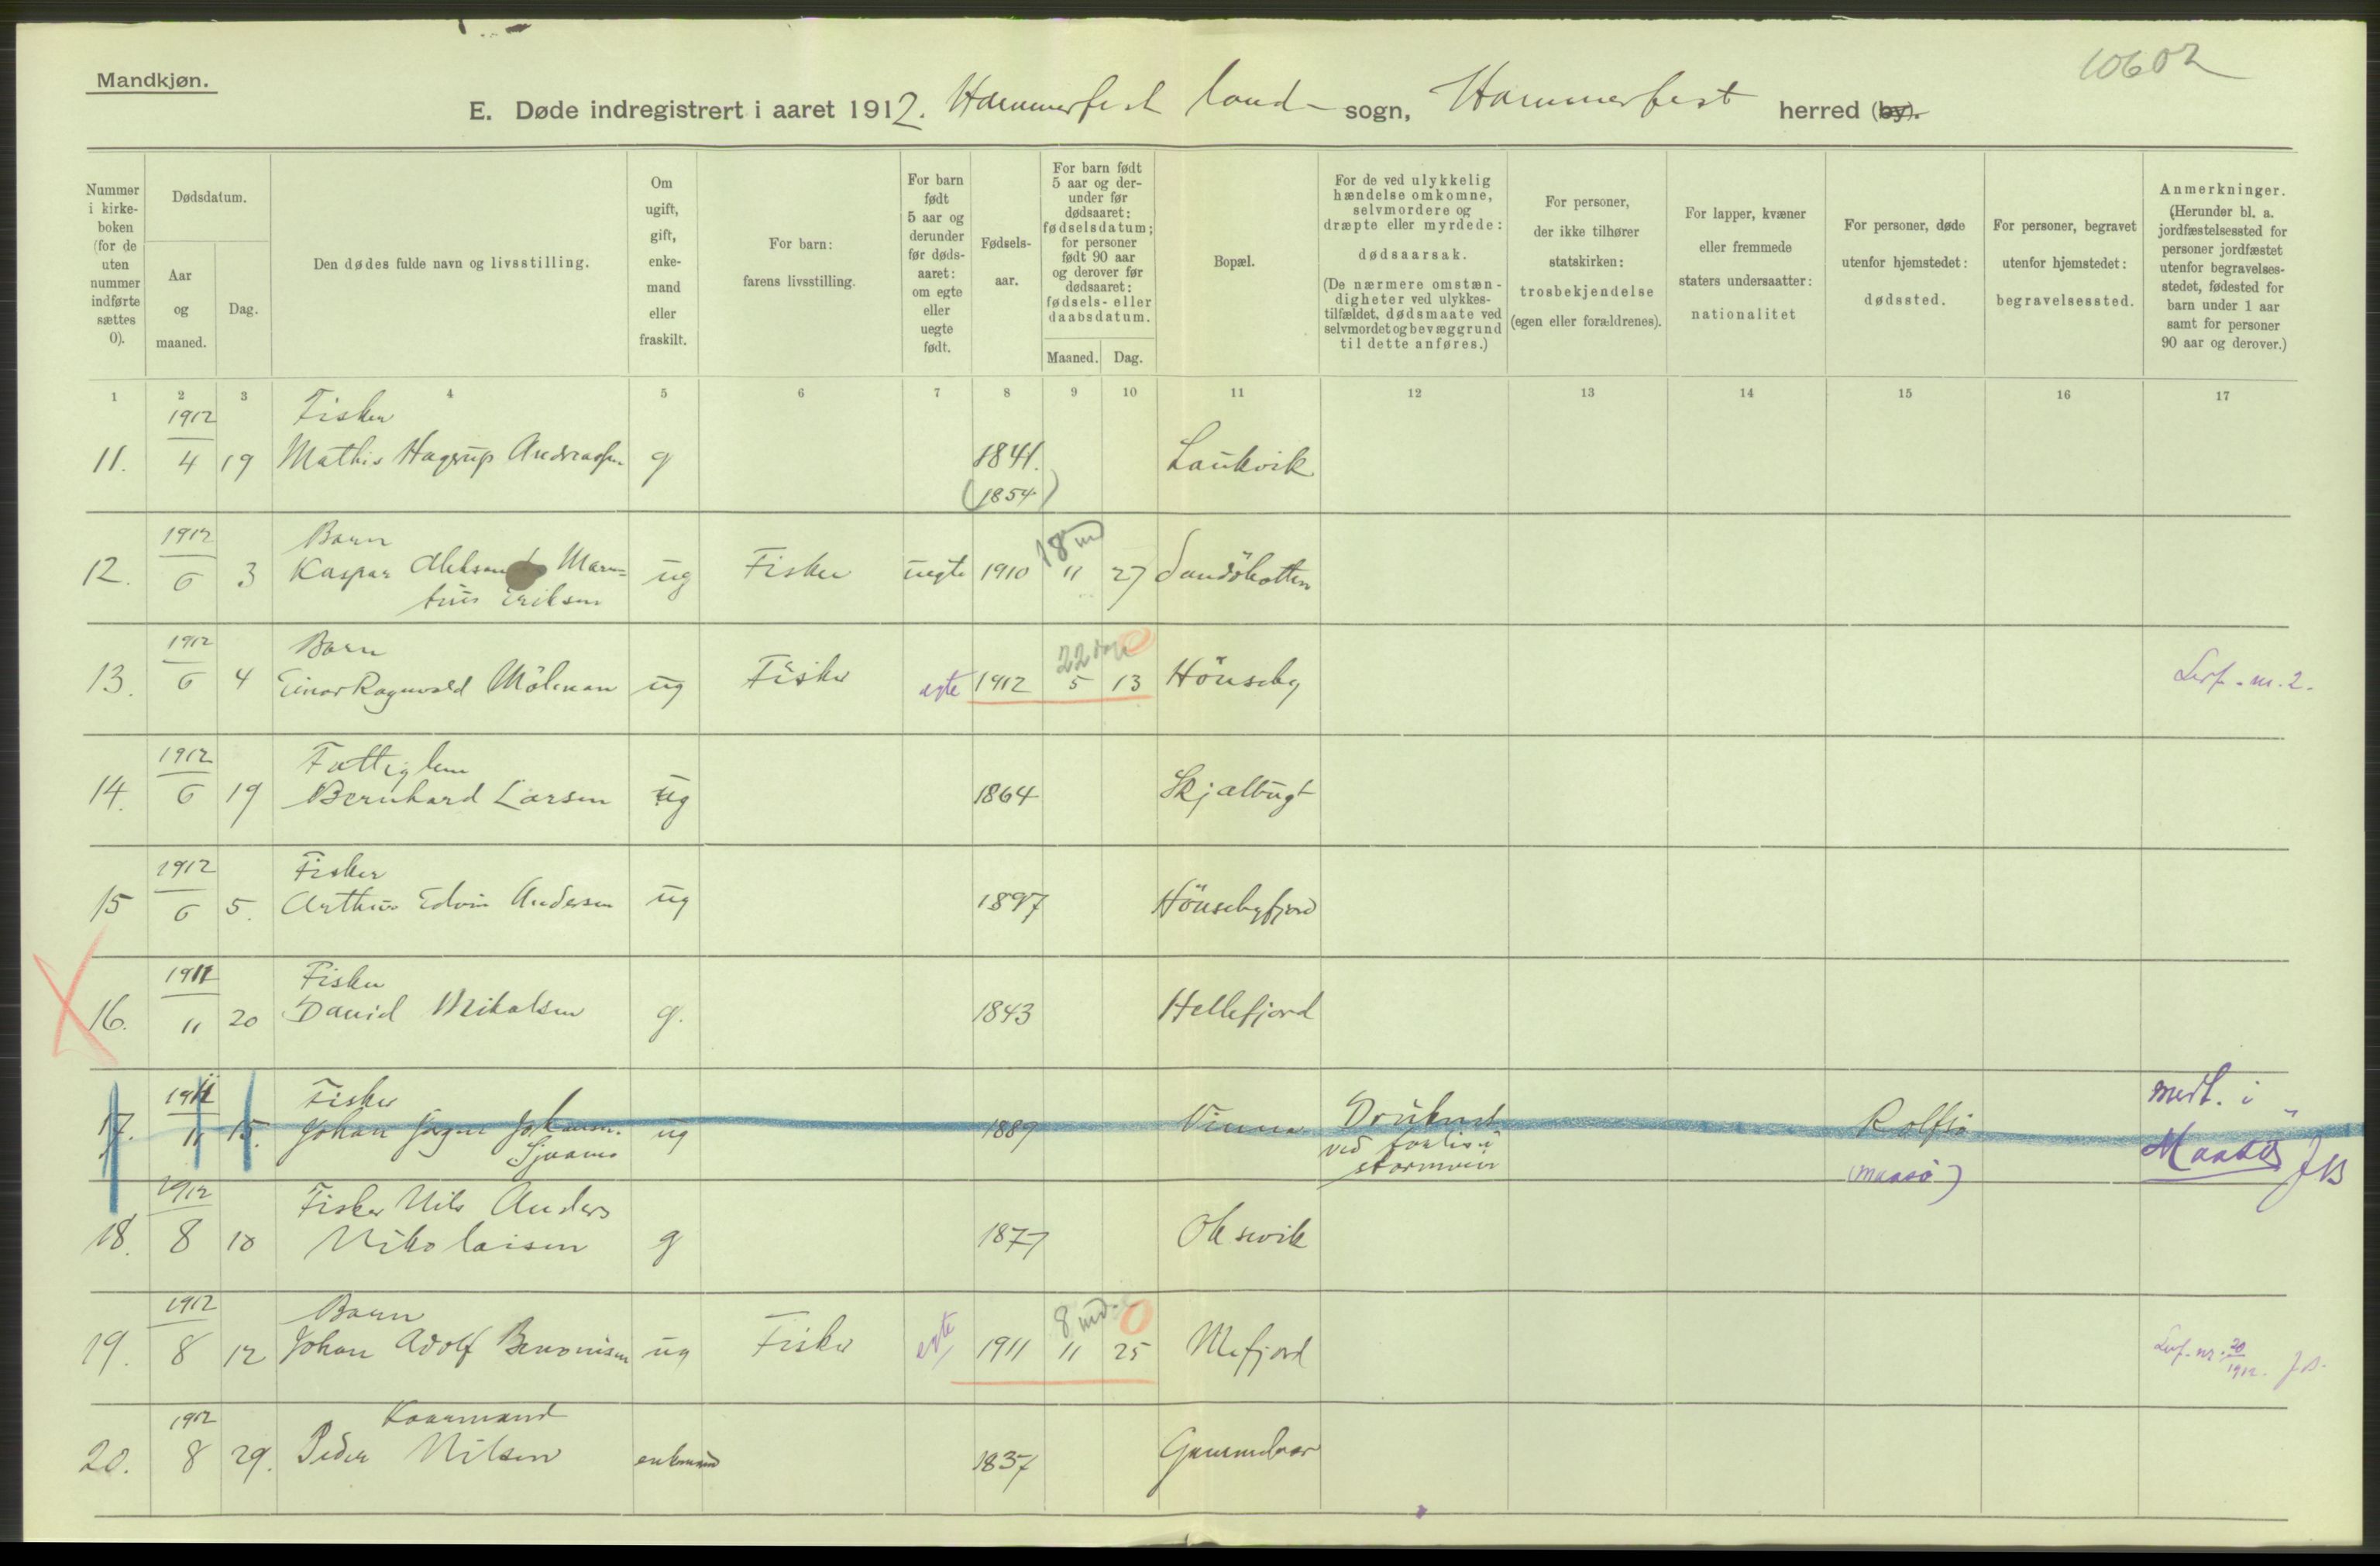 10602
Mandkjøn.
E. Døde indregistrert i aaret 1912. Hammerfest land- sogn, Hammerfest herred (by).
Nummer i kirkeboken (for de uten nummer indførte sættes 0).
Dødsdatum.
Aar og maaned.
Dag.
Den dødes fulde navn og livsstilling.
Om ugift, gift, enkemand eller fraskilt.
For barn: farens livsstilling.
For barn født 5 aar og derunder før dødsaaret: om egte eller uegte født.
Fødselsaar.
For barn født 5 aar og derunder før dødsaaret: fødselsdatum; for personer født 90 aar og derover før dødsaaret: fødsels- eller daabsdatum.
Maaned.
Dag.
Bopæl.
For de ved ulykkelig hændelse omkomne, selvmordere og dræpte eller myrdede: dødsaarsak. (De nærmere omstændigheter ved ulykkestilfældet, dødsmaate ved selvmordet og bevæggrund til dette anføres.)
For personer, der ikke tilhører statskirken: trosbekjendelse (egen eller forældrenes).
For lapper, kvæner eller fremmede staters undersaatter: nationalitet
For personer, døde utenfor hjemstedet: dødssted.
For personer, begravet utenfor hjemstedet: begravelsessted.
Anmerkninger. (Herunder bl. a. jordfæstelsessted for personer jordfæstet utenfor begravelsesstedet, fødested for barn under 1 aar samt for personer 90 aar og derover.)
1 2 3 4 5 6 7 8 9 10 11 12 13 14 15 16 17
1912 Fisker
11. 4 19 Mathis Hagerup Andreassen g 1841. Laukvik
(1854)
1912 Barn 18 md
12. 6 3 Kaspar Mari= ug Fisker uegte 1910 11 27
tius Eriksen
1912 Barn 22 dage 0
13. 6 4 Einar Ragnvald ug Fisker egte 1912 5 13 Hönseby nr. 2.
1912 Fattiglem
14. 6 19 Bernhard Larsen ug 1864 Skjalbugt
1912 Fisker
15 6 5. Arthur Edvin Andersen ug 1897 Hönsebyfjord
1911 Fisker
16. 11 20 David Mikalsen g. 1843 Hellefjord
1911 Fisker medt. i
17. 11 15. Johan Johansen. ug 1889 Druknet Rolfsö Maasö JB
ved forlis i (Maasö)
stormveir
1912 Fisker Nils Anders
18. 8 18 Nikolaisen g 1877 Oksevik
1912 Barn 8 md. 0
19. 8 12 Johan Adolf Benonisen ug Fisker egte 1911 11 25 Mefjord nr. 20/1912. JB.
1912 Kaarmand
20. 8 29. Peder Nilsen enkemand 1837